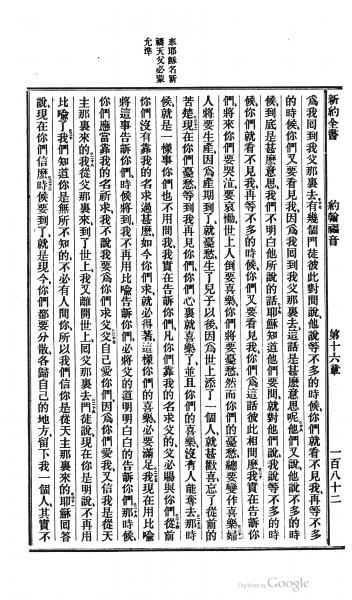 奉耶穌名祈
禱天父必蒙
允準
新約全書
約翰福音
第十六章
一百八十二
爲我回到我父那裏去有幾個門徒彼此對問說他說等不多的時候你們就看不見我再等不多
的時候你們又要看見我因爲我回到我父那裏去這話是甚麽意思呢他們又說他說不多的時
候到底是甚麽意思我們不明白他所說的話耶穌知道他們要問就對他們說我說等不多的時
候你們就看不見我再等不多的時候你們又要看見我你們爲這話彼此相問麽我實在告訴你
們將來你們要哭泣要哀慟世上人倒要喜樂你們將要憂愁然而你們的憂愁總要變作喜樂婦
人將要生產因爲產期到了就憂愁生了兒子以後因爲世上添了一個人就甚歡喜忘了從前的
苦楚現在你們憂愁等到我再見你們你們心裏就喜樂了並且你們的喜樂沒有人能奪去那時
候就是一樣事你們也不用問我我實在告訴你們凡你們靠我的名求父的父必賜與你們從前
你們沒有靠我的名求過甚麽如今你們求就必得著這樣你們的喜樂必要滿足我現在用比喩
將這事告訴你們時候將到我不再用比喩告訴你們必將父的道明明白白的告訴你們那時候
你們應當靠我的名祈求我不說我要爲你們求父父自己愛你們因爲你們愛我又信我是從天
主那裏來的我從父那裏來到了世上我又離開世上回父那裏去門徒說現在你是明說不再用
比喩了我們知道你是無所不知的不必有人問你所以我們信你是從天主那裏來的耶穌回答
說現在你們信麽時候要到了就是現今你們都要分散各歸自己的地方留下我一個人其實不
Digitized by Google